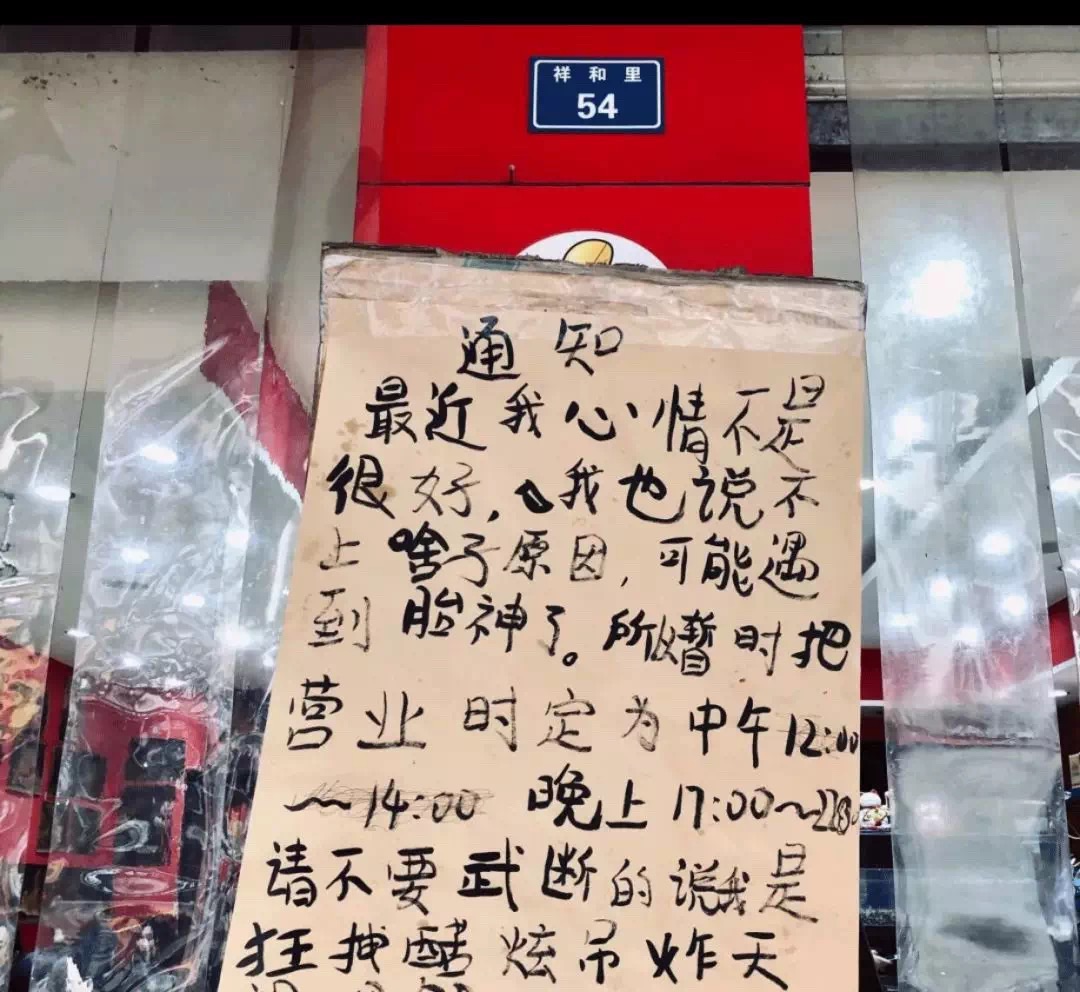 祥和里
54
通知
最近我心情不是
很好,我也说不
上啥子原因,可能遇
到胎神了。所以暂时把
营业时定为中午12:00
~14:00 晚上17:00~
请不要武断的说我是
狂拽酷炫吊炸天